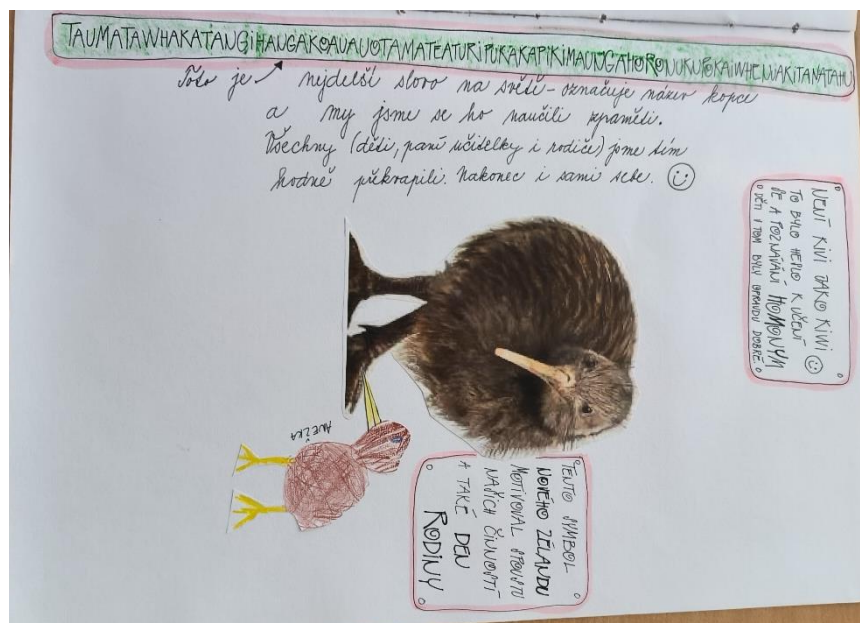 TAUMATAWHAKATANGIHANGAKOAUAUOTAMATEATURIPUKAKAPIKIMAUNGAHORONUKUPOKAIWHENUAKITANATAHU
Toto je nejdelší slovo na světě - označuje název kopce
a my jsme se ho naučili zpaměti.
Všechny (děti, paní učitelky i rodiče) jsme tím
hodně překvapili. Nakonec i sami sebe. ☺
NENÍ KIVI JAKO KIWI
TO BYLO HESLO K UČENÍ ☺
SE A POZNÁVÁNÍ HOMONYM
DĚTI V TOM BYLY OPRAVDU DOBRÉ.
ANEŽKA
TENTO SYMBOL
NOVÉHO ZÉLANDU
MOTIVOVAL SPOUSTU
NAŠICH ČINNOSTÍ
A TAKÉ DEN
RODINY